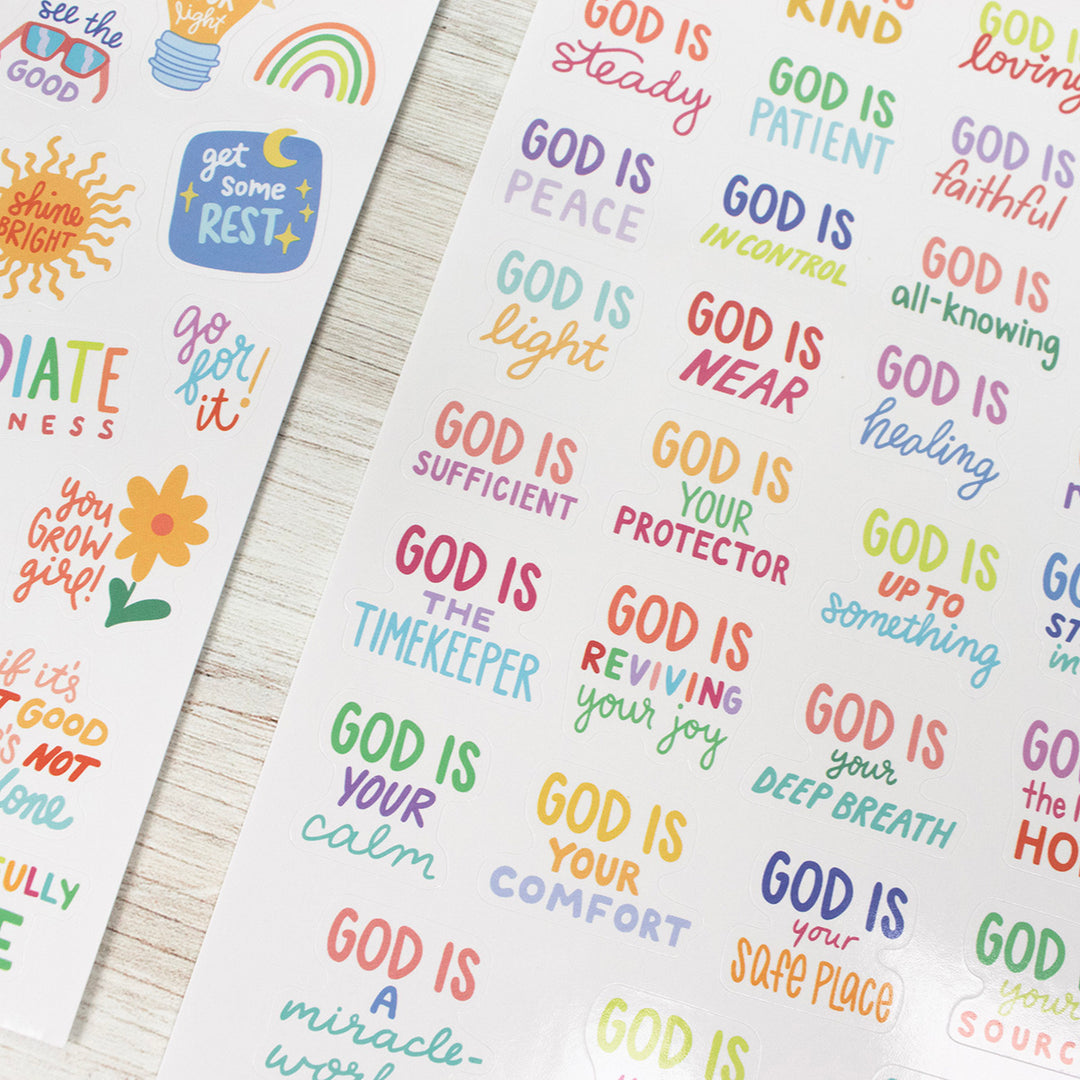 see the
GOOD
light
shine
BRIGHT
get
some
REST
go
for!
it!
you
GROW
girl!
if it's
GOOD
NOT
GOD IS
steady
KIND
GOD IS
loving
GOD IS
PATIENT
GOD IS
PEACE
GOD IS
faithful
GOD IS
IN CONTROL
GOD IS
light
GOD IS
all-knowing
GOD IS
NEAR
GOD IS
healing
GOD IS
SUFFICIENT
GOD IS
YOUR
PROTECTOR
GOD IS
UP TO
something
GOD IS
THE
TIMEKEEPER
GOD IS
REVIVING
your joy
GOD IS
your
DEEP BREATH
the
GOD IS
YOUR
calm
GOD IS
YOUR
COMFORT
GOD IS
your
SAFE PLACE
GOD
your
GOD IS
A
miracle-
GOD IS